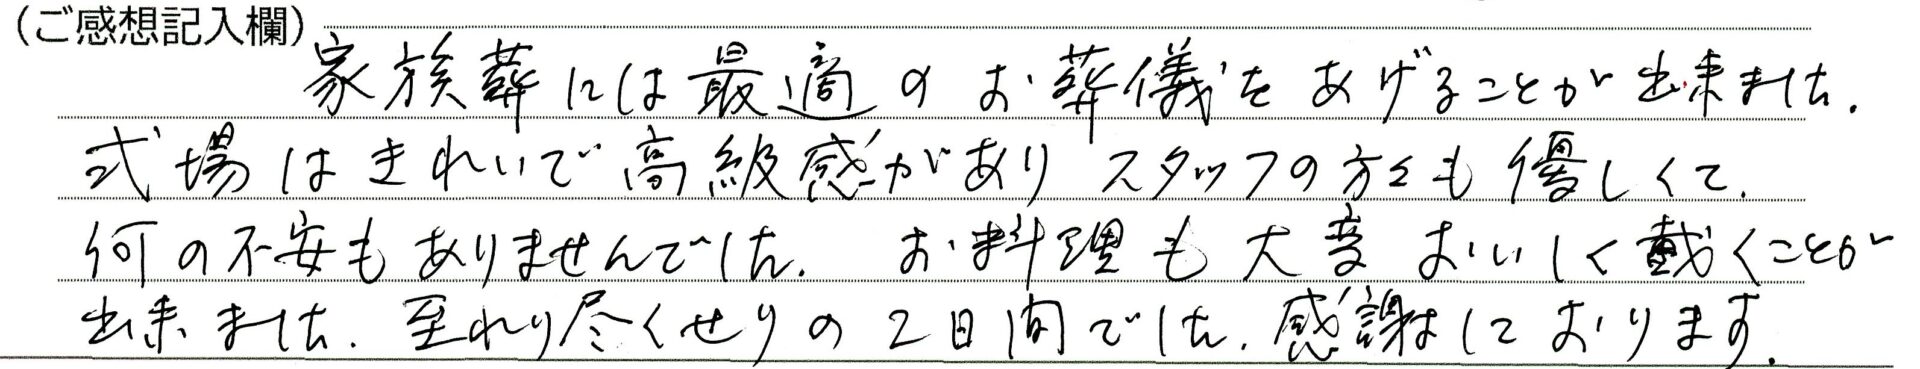 （ご感想記入欄）
家族葬には最適のお葬儀をあげることが出来ました.
式場はきれいで高級感がありスタッフの方々も優しくて.
何の不安もありませんでした. お料理も大変おいしく戴くことが
出来ました. 至れり尽くせりの2日間でした. 感謝しております.